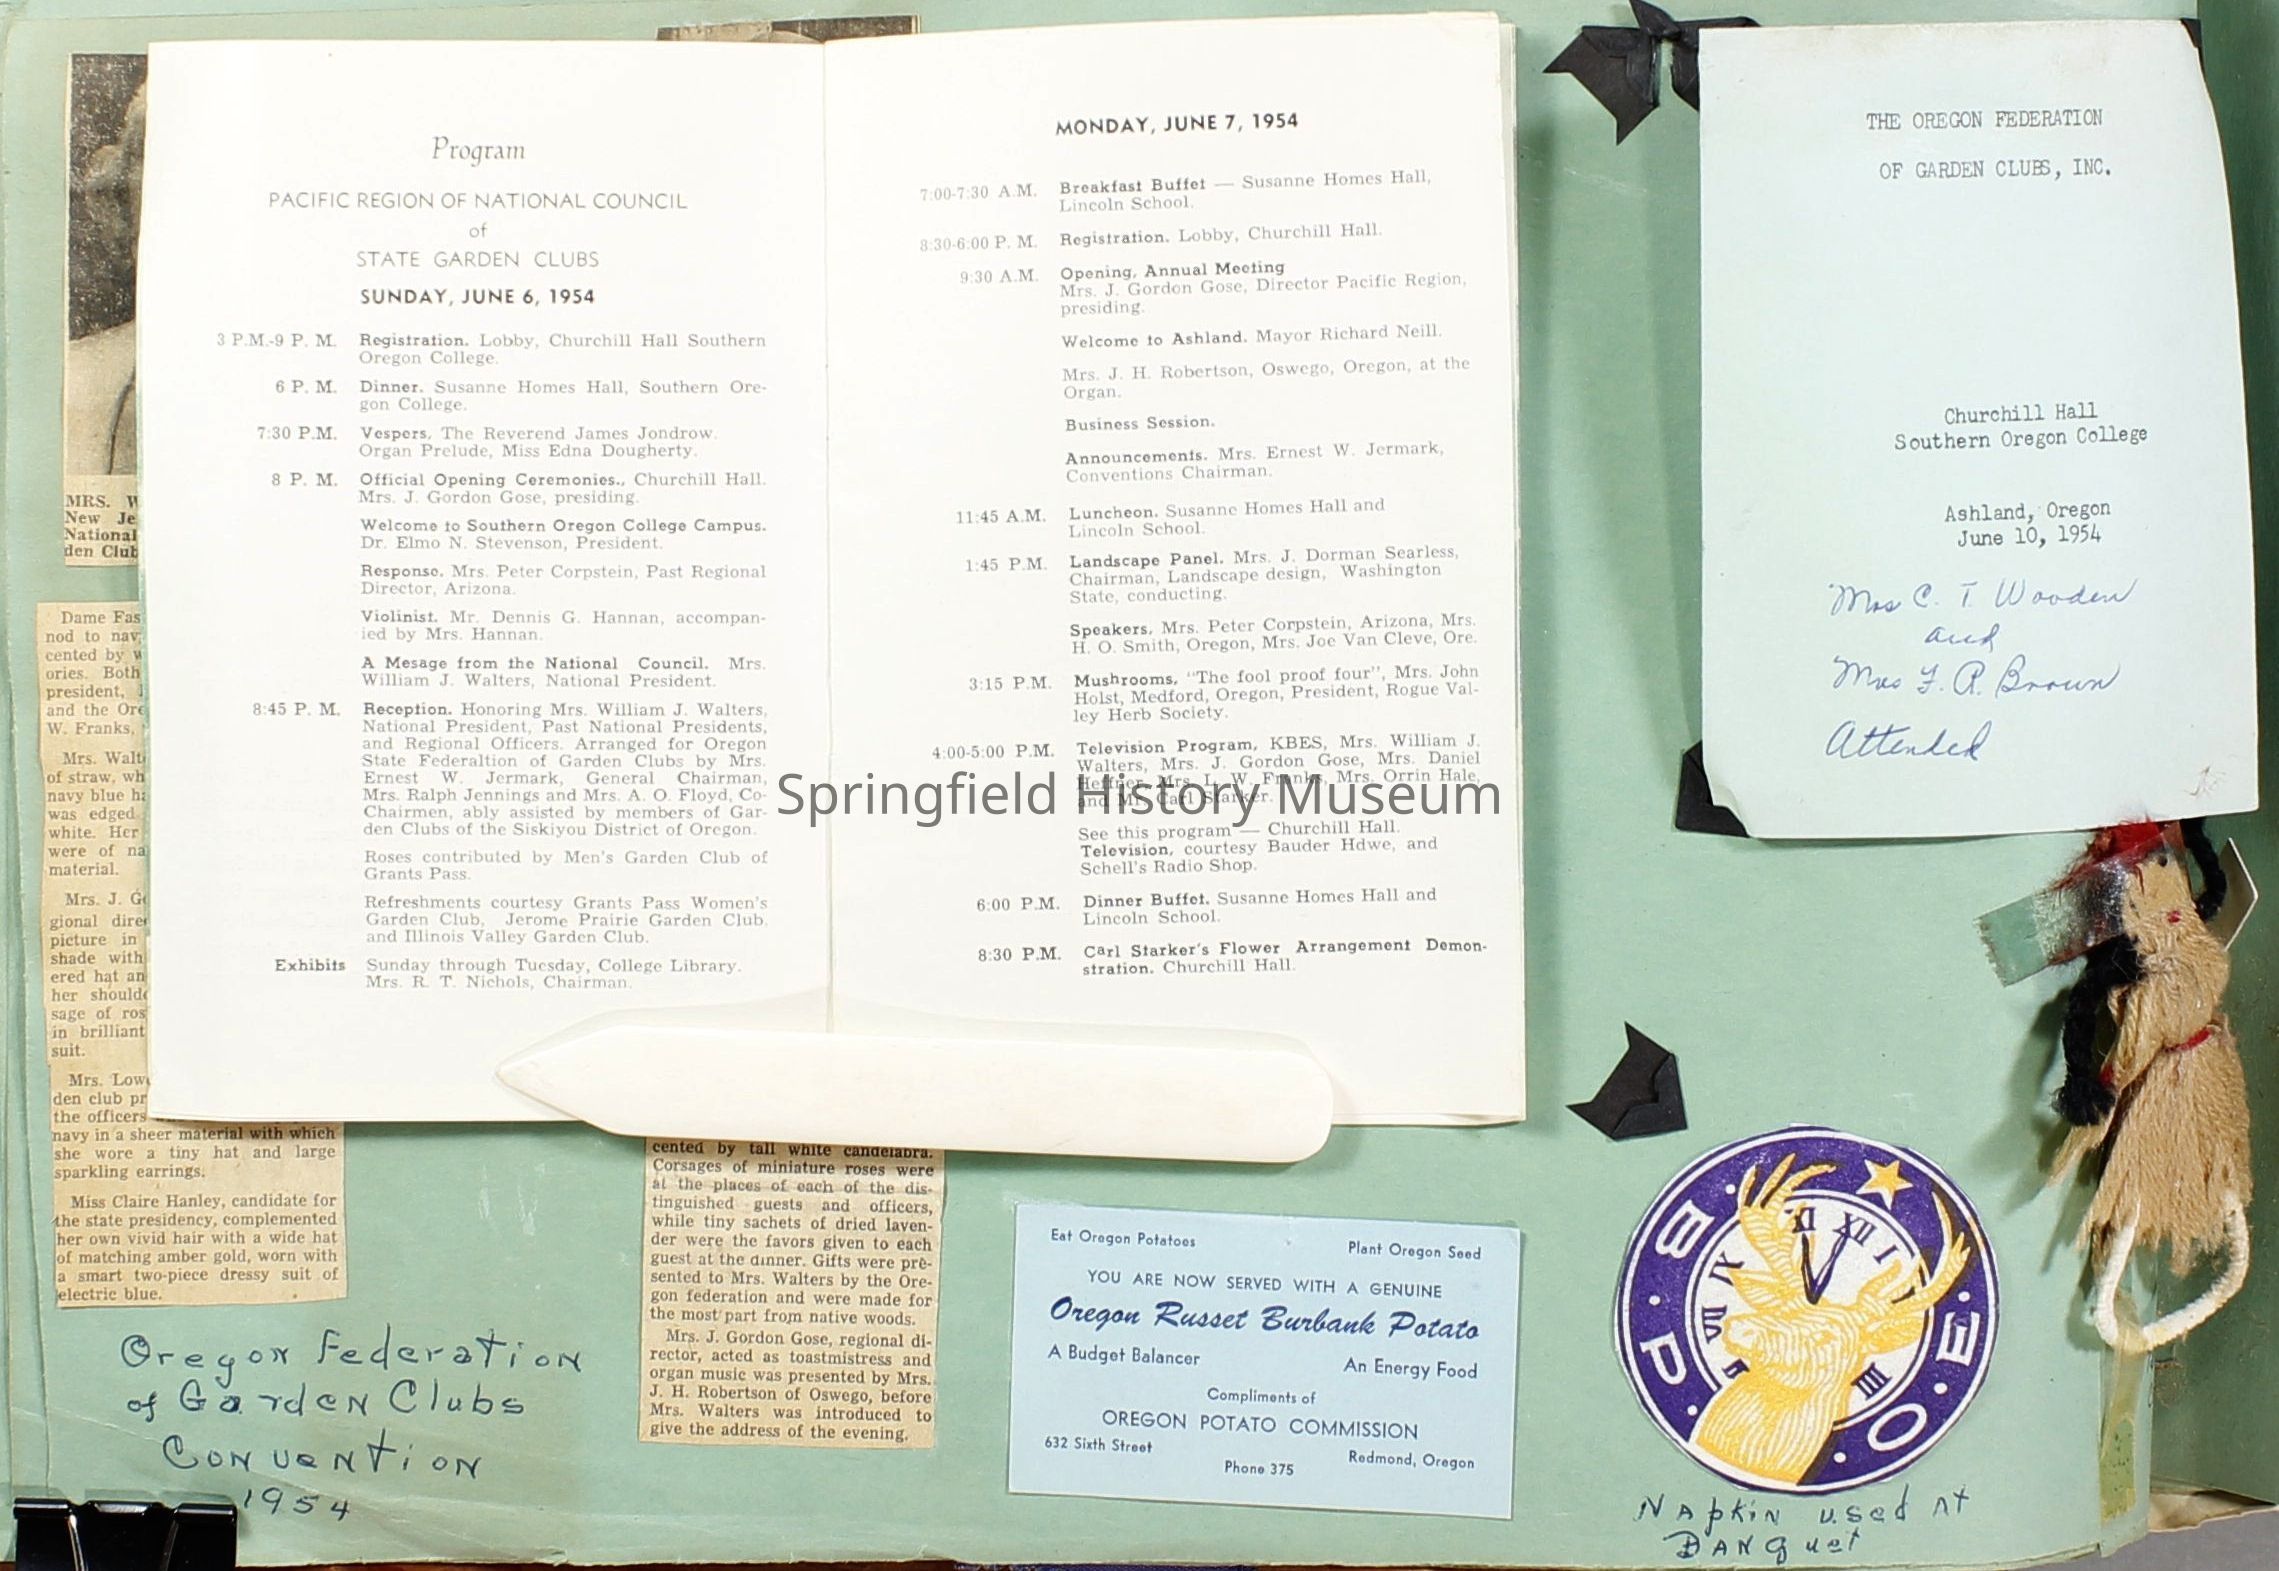 Program
PACIFIC REGION OF NATIONAL COUNCIL
of
STATE GARDEN CLUBS
SUNDAY, JUNE 6, 1954
3 P.M.-9 P. M. Registration. Lobby, Churchill Hall Southern
Oregon College.
6 P. M. Dinner. Susanne Homes Hall, Southern Ore-
gon College.
7:30 P.M. Vespers, The Reverend James Jondrow.
Organ Prelude, Miss Edna Dougherty.
8 P. M. Official Opening Ceremonies., Churchill Hall.
Mrs. J. Gordon Gose, presiding.
Welcome to Southern Oregon College Campus.
Dr. Elmo N. Stevenson, President.
Response. Mrs. Peter Corpstein, Past Regional
Director, Arizona.
Violinist. Mr. Dennis G. Hannan, accompan-
ied by Mrs. Hannan.
A Mesage from the National Council. Mrs.
William J. Walters, National President.
8:45 P. M. Reception. Honoring Mrs. William J. Walters,
National President, Past National Presidents,
and Regional Officers. Arranged for Oregon
State Federaltion of Garden Clubs by Mrs.
Ernest W. Jermark, General Chairman,
Mrs. Ralph Jennings and Mrs. A. O. Floyd, Co-
Chairmen, ably assisted by members of Gar-
den Clubs of the Siskiyou District of Oregon.
Roses contributed by Men's Garden Club of
Grants Pass.
Refreshments courtesy Grants Pass Women's
Garden Club, Jerome Prairie Garden Club,
and Illinois Valley Garden Club.
Exhibits Sunday through Tuesday, College Library.
Mrs. R. T. Nichols, Chairman.
MONDAY, JUNE 7, 1954
7:00-7:30 A.M. Breakfast Buffet — Susanne Homes Hall,
Lincoln School.
8:30-6:00 P. M. Registration. Lobby, Churchill Hall.
9:30 A.M. Opening, Annual Meeting
Mrs. J. Gordon Gose, Director Pacific Region,
presiding.
Welcome to Ashland. Mayor Richard Neill.
Mrs. J. H. Robertson, Oswego, Oregon, at the
Organ.
Business Session.
Announcements. Mrs. Ernest W. Jermark,
Conventions Chairman.
11:45 A.M. Luncheon. Susanne Homes Hall and
Lincoln School.
1:45 P.M. Landscape Panel. Mrs. J. Dorman Searless,
Chairman, Landscape design, Washington
State, conducting.
Speakers, Mrs. Peter Corpstein, Arizona, Mrs.
H. O. Smith, Oregon, Mrs. Joe Van Cleve, Ore.
3:15 P.M. Mushrooms, "The fool proof four", Mrs. John
Holst, Medford, Oregon, President, Rogue Val-
ley Herb Society.
4:00-5:00 P.M. Television Program, KBES, Mrs. William J.
Walters, Mrs. J. Gordon Gose, Mrs. Daniel
Heffner, Mrs. L. W. Franks, Mrs. Orrin Hale,
and Mr. Carl Starker.
See this program — Churchill Hall.
Television, courtesy Bauder Hdwe, and
Schell's Radio Shop.
6:00 P.M. Dinner Buffet. Susanne Homes Hall and
Lincoln School.
8:30 P.M. Carl Starker's Flower Arrangement Demon-
stration. Churchill Hall.
Springfield History Museum
THE OREGON FEDERATION
OF GARDEN CLUBS, INC.
Churchill Hall
Southern Oregon College
Ashland, Oregon
June 10, 1954
Mrs C. T. Wooden
and
Mrs F. R. Brown
Attended
MRS. W
New Je
National
den Club
Dame Fas
nod to nav
cented by w
ories. Both
president,
and the Ore
W. Franks,
Mrs. Walt
of straw, wh
navy blue ha
was edged
white. Her
were of na
material.
Mrs. J. G
gional dire
picture in
shade with
ered hat an
her should
sage of ros
in brilliant
suit.
Mrs. Low
den club pr
the officers
navy in a sheer material with which
she wore a tiny hat and large
sparkling earrings.
Miss Claire Hanley, candidate for
the state presidency, complemented
her own vivid hair with a wide hat
of matching amber gold, worn with
a smart two-piece dressy suit of
electric blue.
cented by tall white candelabra.
Corsages of miniature roses were
at the places of each of the dis-
tinguished guests and officers,
while tiny sachets of dried laven-
der were the favors given to each
guest at the dinner. Gifts were pre-
sented to Mrs. Walters by the Ore-
gon federation and were made for
the most part from native woods.
Mrs. J. Gordon Gose, regional di-
rector, acted as toastmistress and
organ music was presented by Mrs.
J. H. Robertson of Oswego, before
Mrs. Walters was introduced to
give the address of the evening.
Oregon Federation
of Garden Clubs
Convention
1954
Eat Oregon Potatoes Plant Oregon Seed
YOU ARE NOW SERVED WITH A GENUINE
Oregon Russet Burbank Potato
A Budget Balancer An Energy Food
Compliments of
OREGON POTATO COMMISSION
632 Sixth Street Redmond, Oregon
Phone 375
B. P. O. E.
XI XII I III
Napkin used at
Banquet